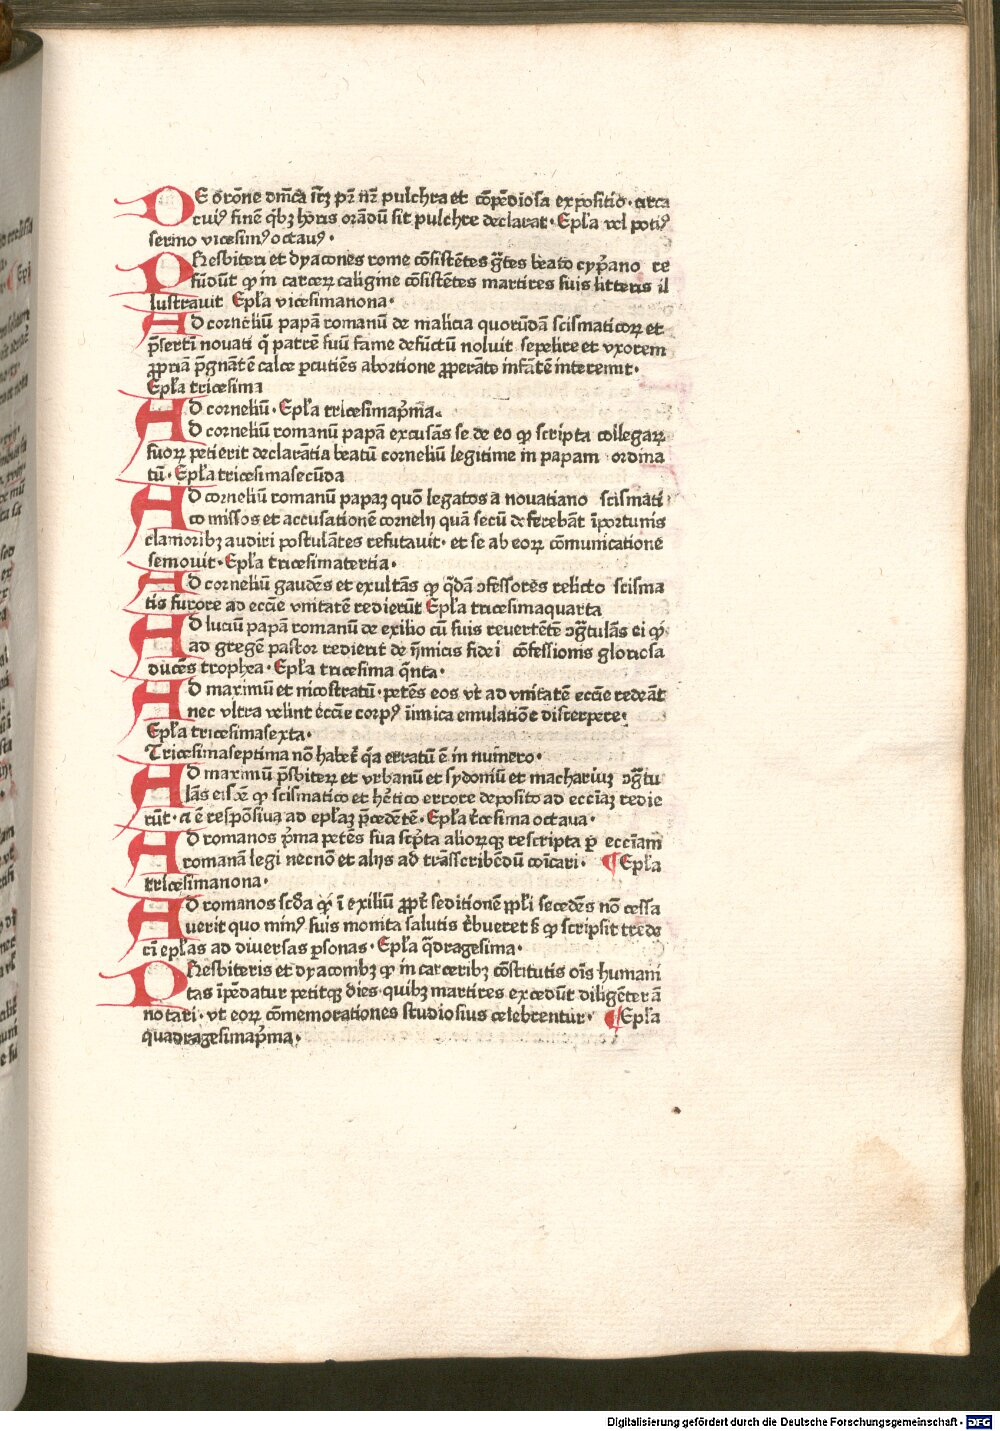 DE orōne dm̄ca scꝫ pr̄ nr̄ pulchra et cōpēdiosa expositio · circa
cuiꝰ finē qͥbꝫ horis orādū sit pulchre declarat · Epl̄a vel potiꝰ
sermo vicesimꝰ octauꝰ ·
PResbiteri et dyacones rome cōsistētes gr̄tes beato cyp̄ano re
fūdūt ꝙ in carceꝝ caligine cōsistētes martires suis litteris il
lustrauit Epl̄a vicesimanona ·
AD corneliū papā romanū de malicia quorūdā scismaticoꝝ et
p̄sertī nouati q̄ patrē suū fame defūctū noluit sepelire et vxorem
ꝓpriā p̄gnātē calce ꝑcutiēs abortione ꝓperāte infātē interemit ·
Epl̄a tricesima
AD corneliū · Epl̄a tricesimap̄ma ·
D corneliū romanū papā excusās se de eo ꝙ scripta collegaꝝ
suoꝝ petierit declarātia beatū corneliū legitime in papam ordina
tū · Epl̄a tricesimasecūda
AD corneliū romanū papaꝫ quō legatos a nouatiano scismati
co missos et accusationē cornelij quā secū deferebāt īportunis
clamoribꝫ audiri postulātes refutauit · et se ab eoꝝ cōmunicatione
semouit · Epl̄a tricesimatertia ·
AD corneliū gaudēs et exultās ꝙ qͥdā ꝯfessores relicto scisma
tis furore ad eccl̄ie vnitatē redierūt Epl̄a tricesimaquarta
AD luciū papā romanū de exilio cū suis reuertētē ꝯgr̄tulās ei ꝙ
ad gregē pastor redierit de ijmicis fidei cōfessionis gloriosa
ducēs trophea · Epl̄a tricesima qͥnta ·
AD maximū et nicostratū · petēs eos vt ad vnitatē eccl̄ie redeāt
nec vltra velint eccl̄ie corpꝰ īimica emulatiōe discerpere ·
Epl̄a tricesimasexta ·
Tricesimaseptima nō habet̄ qͥa erratū ē in numero ·
AD maximū p̄sbiteꝝ et vrbanū et sydoniū et machariuꝫ ꝯgr̄tu
lās eisdē ꝙ scismatico et h̄etico errore deposito ad eccl̄iaꝫ redie
rūt · ē respōsiua ad epl̄aꝫ p̄cedētē · Epl̄a tͥcesima octaua ·
AD romanos p̄ma petēs sua scp̄ta alioꝝqꝫ rescripta ꝑ eccl̄iam
romanā legi necnō et alijs ad trāsscribēdū cōicari · ¶ Epl̄a
tricesimanona ·
AD romanos scd̄a ꝙ ī exiliū ꝓpt̄ seditionē ppl̄i secedēs nō cessa
uerit quo minꝰ suis monita salutis ꝙ scripsit trede
cī epl̄as ad diuersas ꝑsonas · Epl̄a qͣdragesima ·
PResbiteris et dyaconibꝫ ꝙ in carceribꝫ cōstitutis oīs humani
tas īpēdatur petitqꝫ dies quibꝫ martires excedūt diligēter ā
notari · vt eoꝝ cōmemorationes studiosius celebrentur · ¶ Epl̄a
quadragesimap̄ma ·
Digitalisierung gefördert durch die Deutsche Forschungsgemeinschaft - DFG